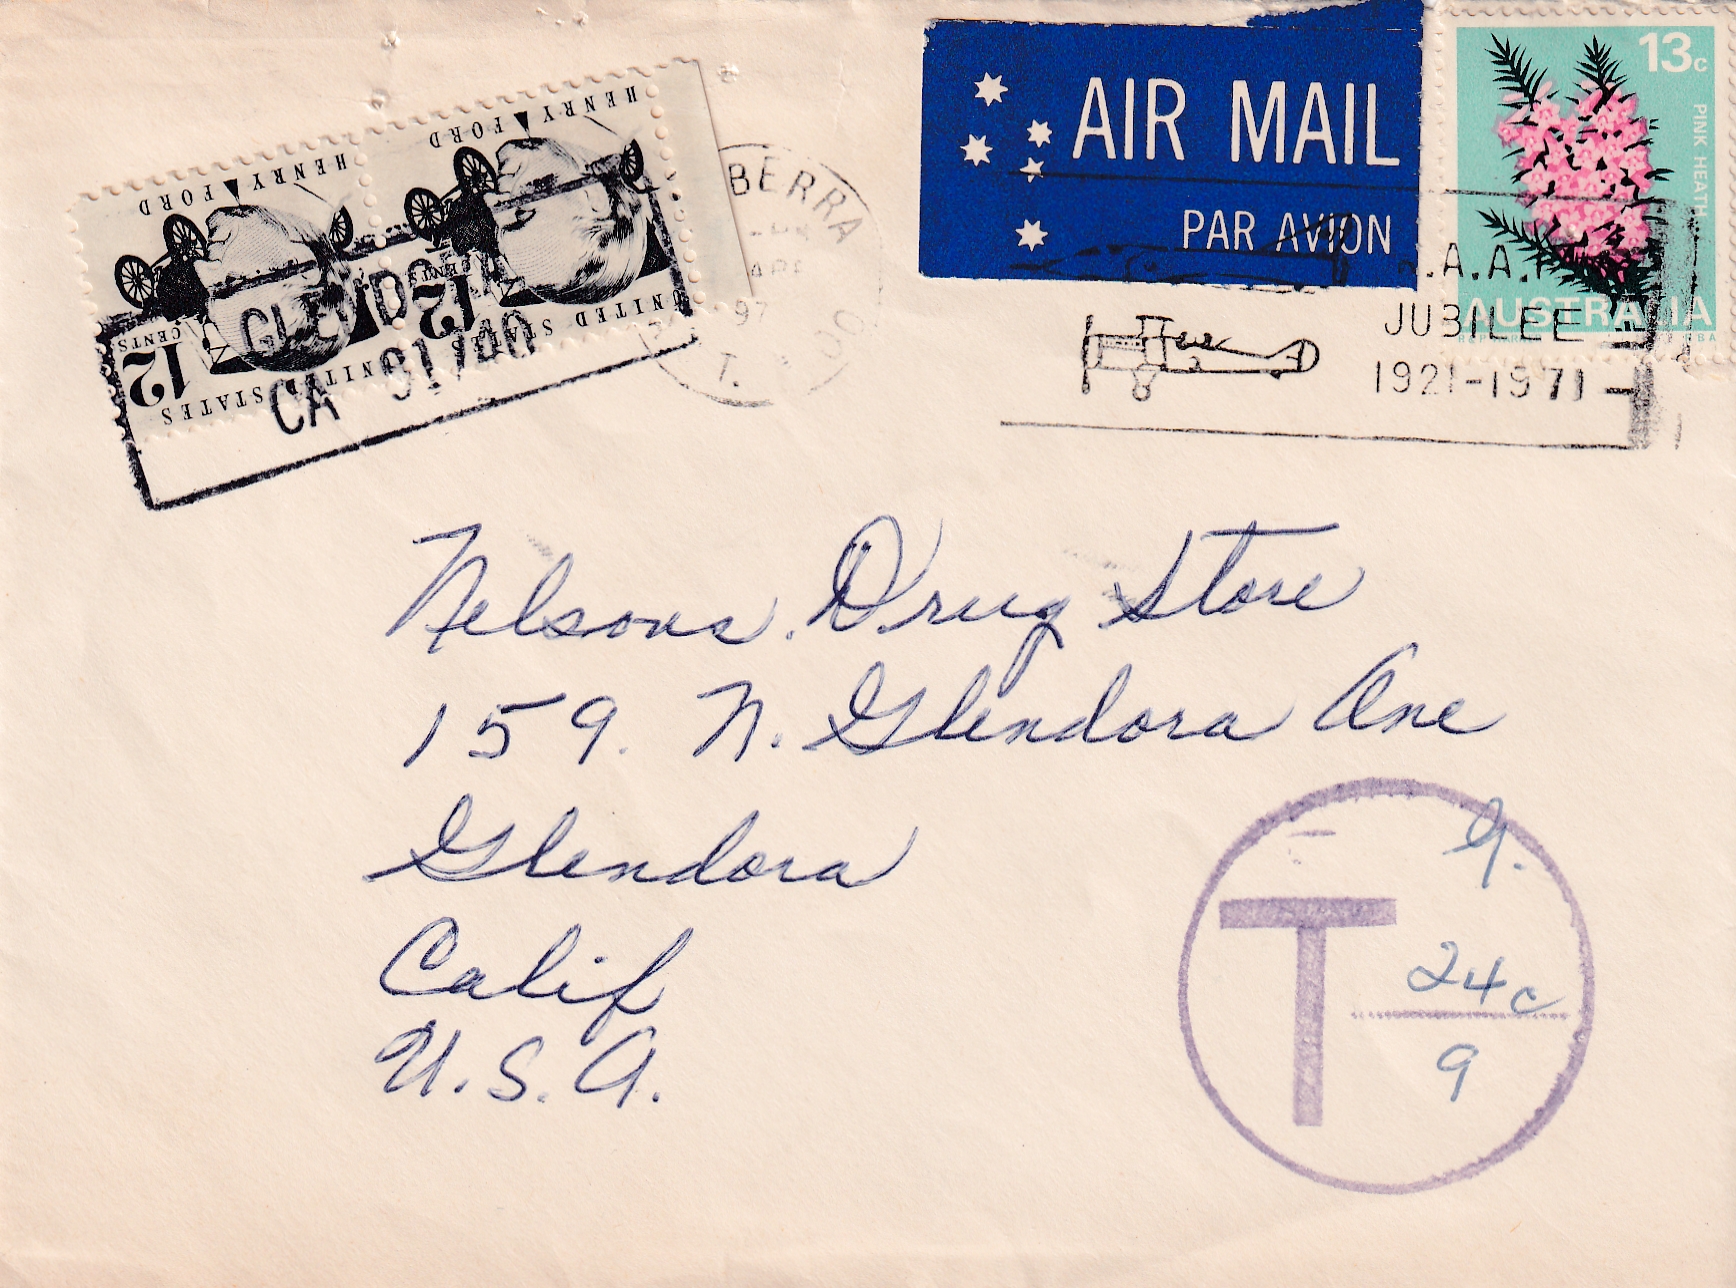 HENRY FORD
HENRY FORD
12 CENTS
12 CENTS
UNITED STATES
UNITED STATES
GLENDORA
CA 91740
BERRA
197
T.
AIR MAIL
PAR AVION
13c
PINK HEATH
AUSTRALIA
R.A.A.F.
JUBILEE
1921-1971
Nelsons Drug Store
159. N. Glendora Ave
Glendora
Calif
U.S.A.
T
24c
9